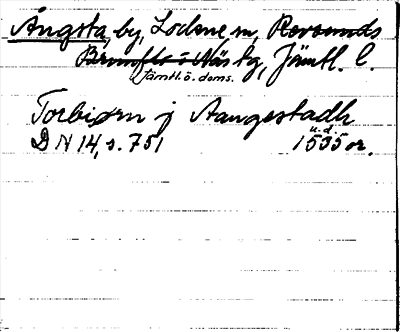 Ängsta, by, Lockne sn, Revsunds
Brunflo o Näs tg, Jämtl. l.
Jämtl. ö. doms.
Torbiørn j Aangestadh
u. d.
DN 14, s. 751 1535 or.